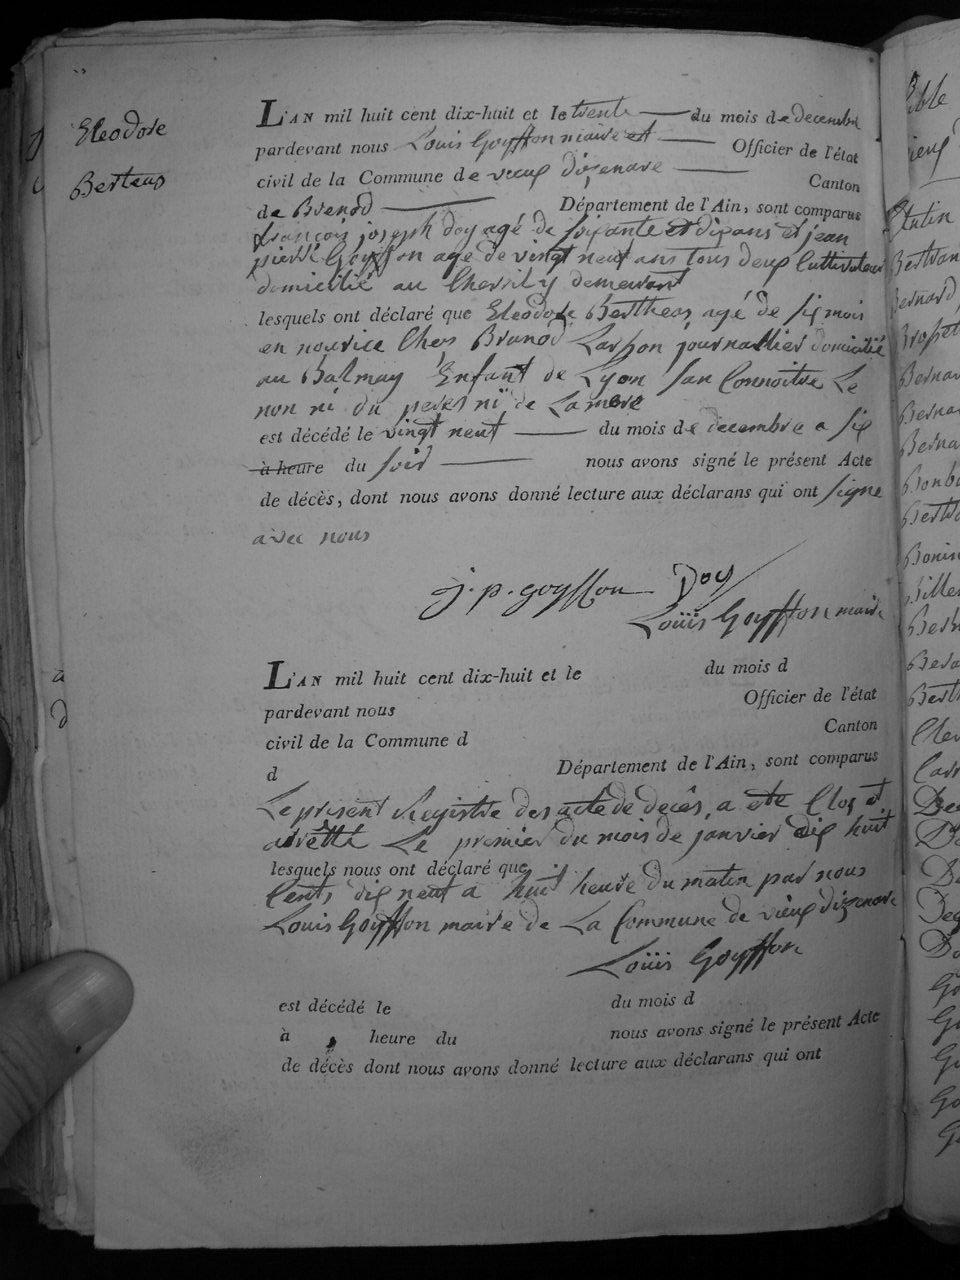 Eleodore
Berteas
L'AN mil huit cent dix-huit et le trente du mois de decembre
pardevant nous Louis Goyffon maire et Officier de l'état
civil de la Commune de vieux dizenave Canton
de Brenod Département de l'Ain, sont comparus
francois joseph doy agé de soixante et dix ans et jean
pierre Goyffon age de vingt neuf ans tous deux Cultivateur
domicilié au Chevrily demeurant
lesquels ont déclaré que Eleodore Bertheas, agé de six mois
en nourice Ches Brunod journallier domicilié
au Balmay Enfant de Lyon san Connoitre Le
non ni du peres ni de La mere
est décédé le vingt neuf du mois de decembre a six
à heure du soir nous avons signé le présent Acte
de décès, dont nous avons donné lecture aux déclarans qui ont signe
avec nous
j. p. goyffon Doy
Loüis Goyffon maire
L'AN mil huit cent dix-huit et le du mois d
pardevant nous Officier de l'état
civil de la Commune d Canton
d Département de l'Ain, sont comparus
Le present Registre des acte de decès, a ete Clos et
arrêtté Le premier du mois de janvier dix huit
lesquels nous ont déclaré que
Cents dix neuf a huit heure du matin par nous
Louis Goyffon maire de La Commune de vieux dizenave
Loüis Goyffon
est décédé le du mois d
à heure du nous avons signé le présent Acte
de décès dont nous avons donné lecture aux déclarans qui ont